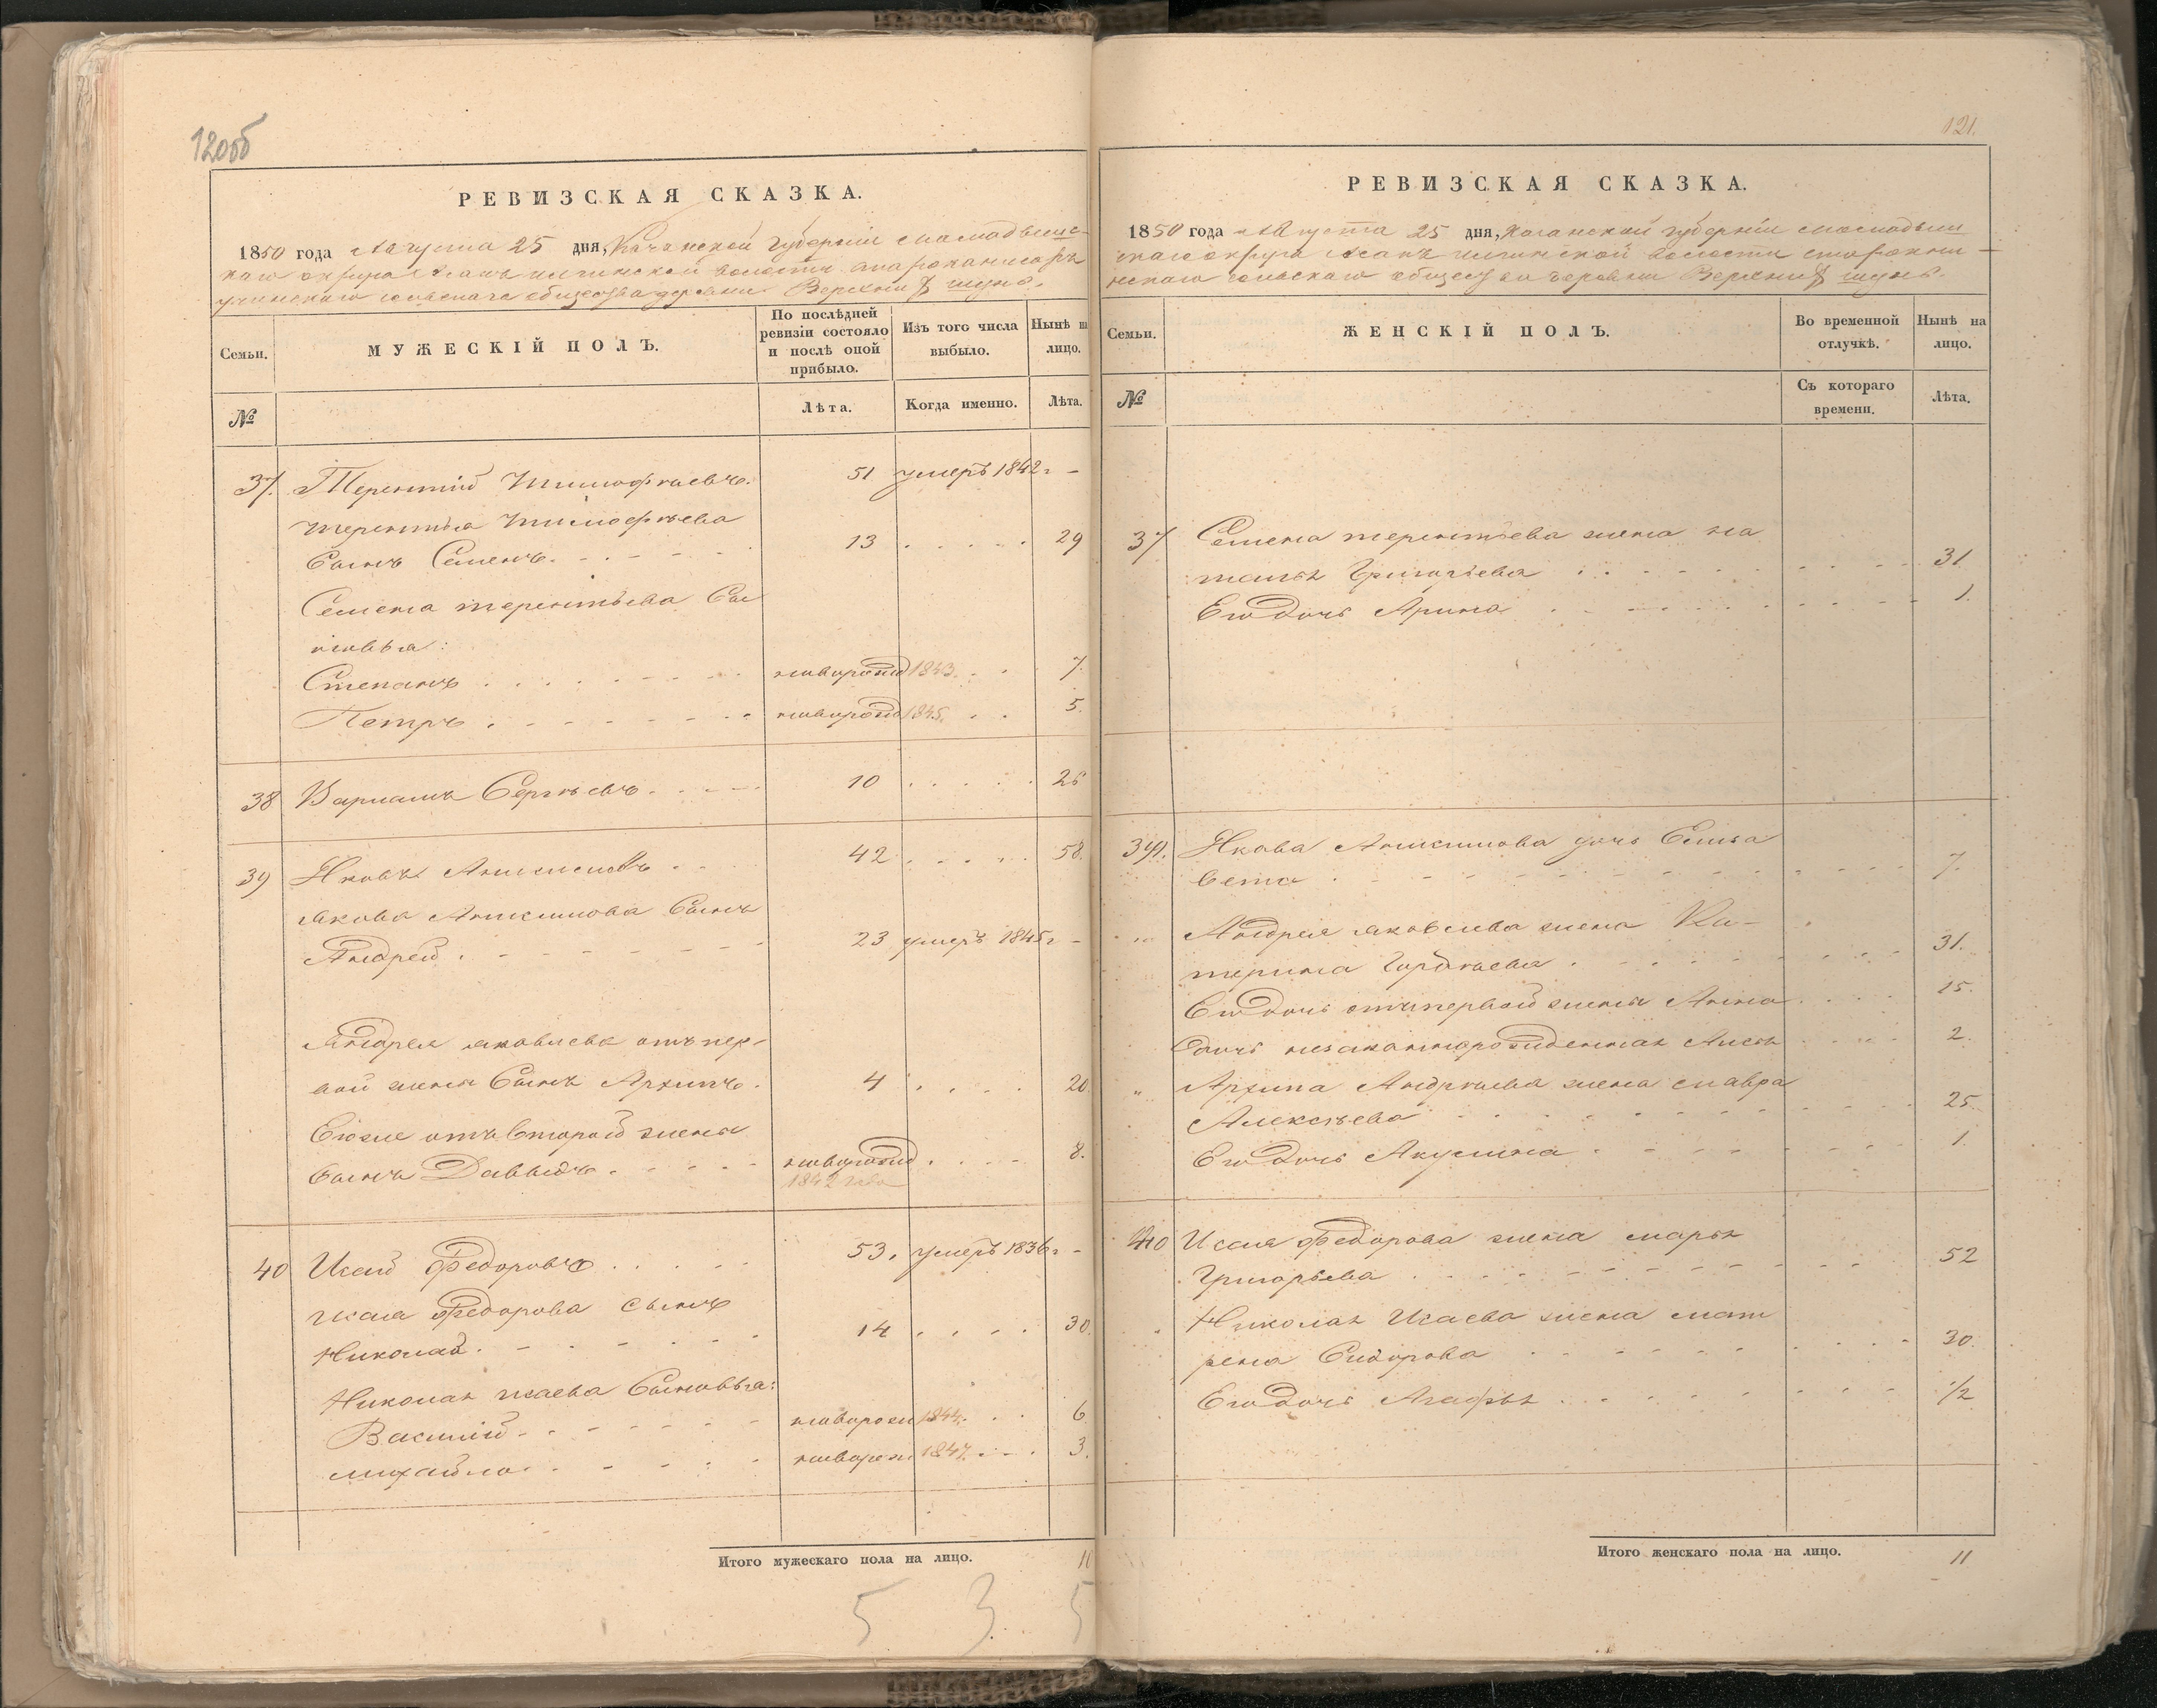 120об
РЕВИЗСКАЯ СКАЗКА.
1850 года Августа 25 дня, Казанской губерніи Мамадышс-
каго округа волости
сельскаго общества деревни Верхній шунь.
Семьи. МУЖЕСКІЙ ПОЛЪ. По послѣдней ревизіи состояло и послѣ оной прибыло. Изъ того числа выбыло. Нынѣ на лицо.
№ Лѣта. Когда именно. Лѣта.
37. Терентій Тимофѣевъ. 51 умеръ 1842г -
терентья тимофѣева
Сынъ Семенъ. 13 29
Семена терентьева Сы
новья:
Степанъ новорожд 1843. 7.
Петръ новорожд 1845. 5.
38 Варламъ Сергѣевъ 10 26
39 Яковъ Анисимовъ 42 58.
якова Анисимова Сынъ
Андрей 23 умеръ 1845г -
Андрея яковлева отъ пер-
вой жены Сынъ Архипъ. 4 20
Егоже отъ второй жены
Сынъ Давыдъ. новорожд 8.
1842 года
40 Исай Федоровъ 53. умеръ 1836г -
исая Федорова сынъ
Николай. 14 30.
Николая исаева Сыновья:
Василій новорож 1844. 6.
михайло новорож 1847. 3.
Итого мужескаго пола на лицо. 11
5 3 5
121.
РЕВИЗСКАЯ СКАЗКА.
1850 года Августа 25 дня, Казанской губерніи Мамадыш
скаго округа волости
сельскаго общества деревни Верхній шунь.
Семьи. ЖЕНСКІЙ ПОЛЪ. Во временной отлучкѣ. Нынѣ на лицо.
№ Съ котораго времени. Лѣта.
37 Семена терентьева жена на
талья Григорьева 31.
Его дочь Арина 1.
39. Якова Анисимова дочь Елиза
вета 7.
Андрея яковлева жена Ка-
терина Гордѣева 31.
Его дочь отъ первой жены Анна 15.
дочь незаконнорожденная 2.
Архипа Андрѣева жена мавра
Алексѣева 25
Его дочь Акулина 1
40 Исая Федорова жена марья
Григорьева 52
Николая Исаева жена мат
рена Сидорова 30.
Его дочь Агафья 1/2
Итого женскаго пола на лицо. 11